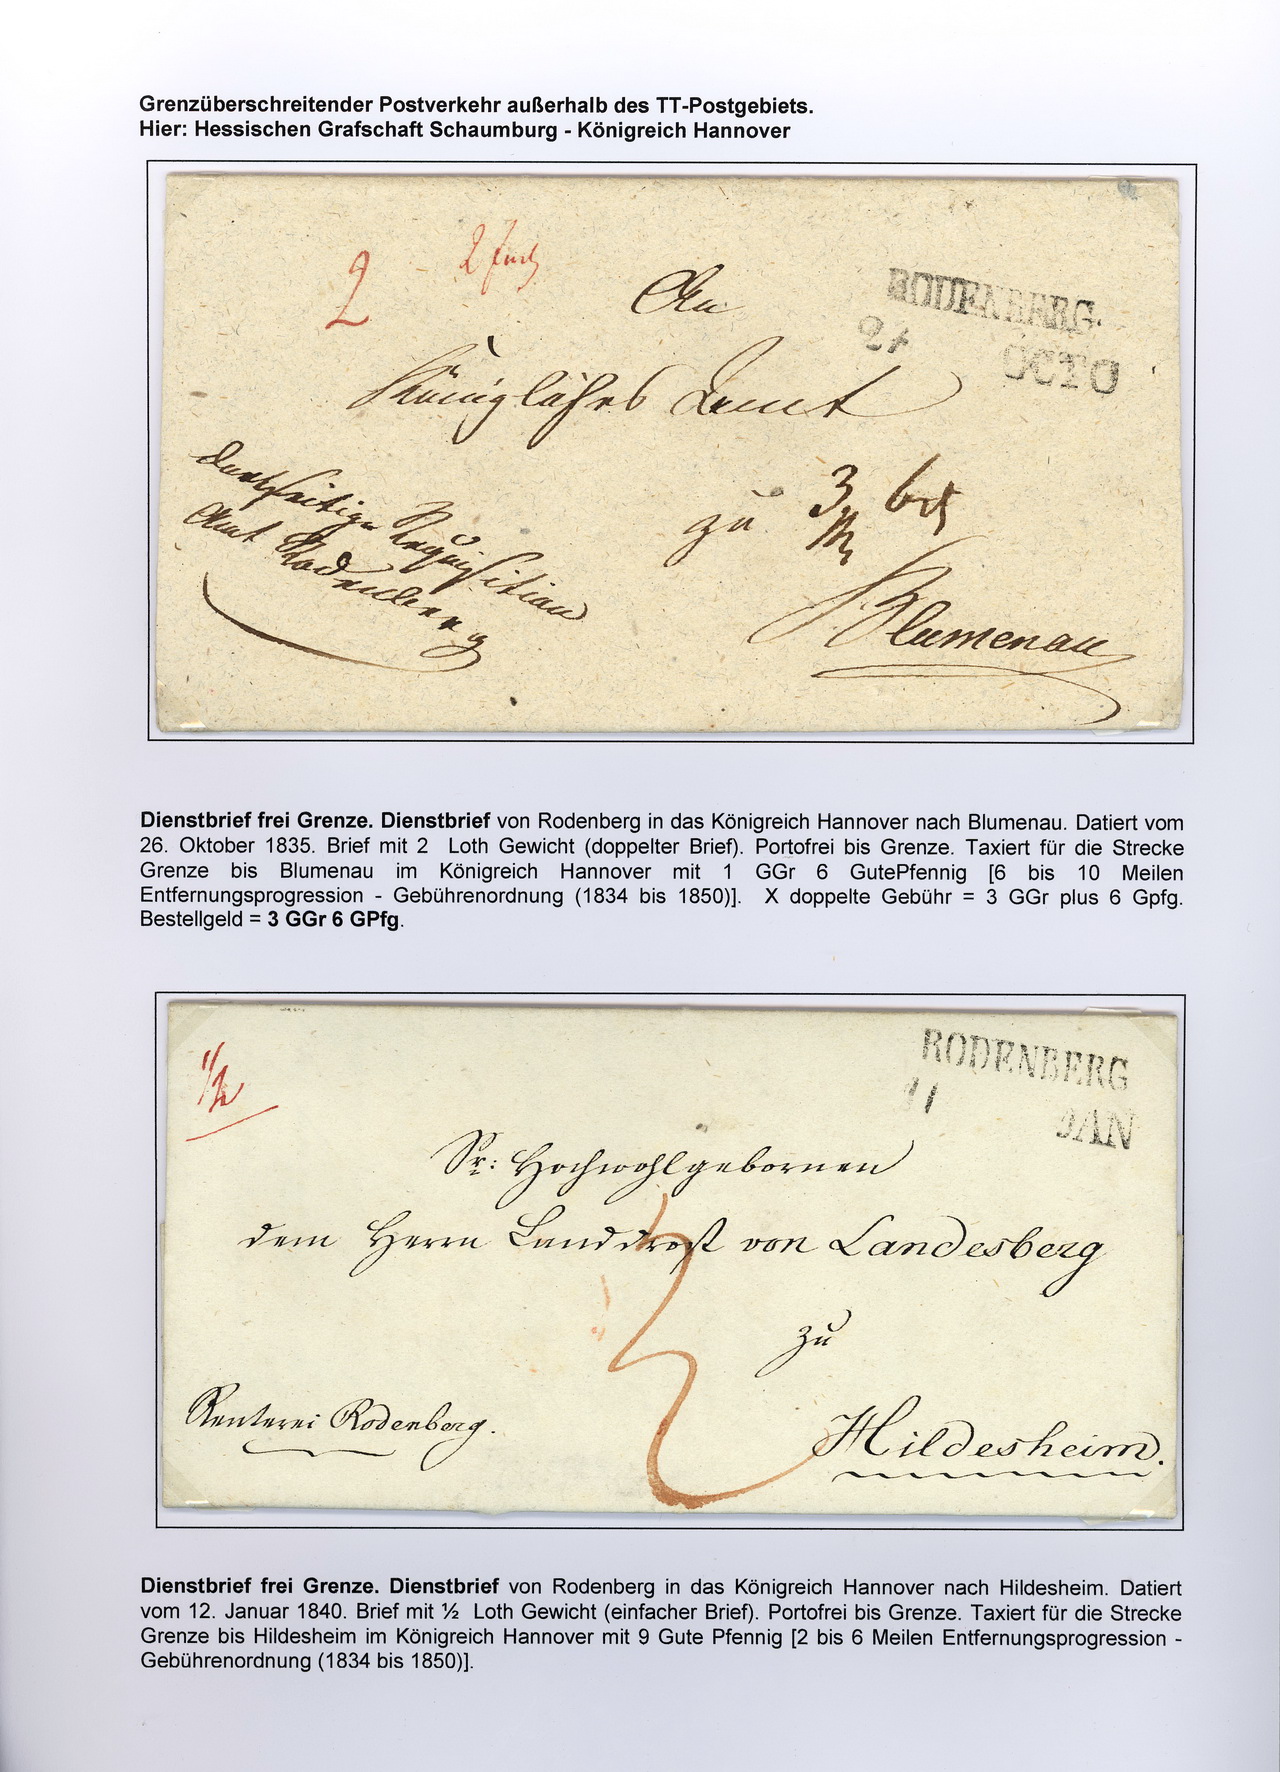 Grenzüberschreitender Postverkehr außerhalb des TT-Postgebiets.
Hier: Hessischen Grafschaft Schaumburg - Königreich Hannover
2
An
RODENBERG.
OCTO
Königliches Amt
Requisition
Amt Rodenberg
zu
3
Blumenau
Dienstbrief frei Grenze. Dienstbrief von Rodenberg in das Königreich Hannover nach Blumenau. Datiert vom
26. Oktober 1835. Brief mit 2 Loth Gewicht (doppelter Brief). Portofrei bis Grenze. Taxiert für die Strecke
Grenze bis Blumenau im Königreich Hannover mit 1 GGr 6 GutePfennig [6 bis 10 Meilen
Entfernungsprogression - Gebührenordnung (1834 bis 1850)]. X doppelte Gebühr = 3 GGr plus 6 Gpfg.
Bestellgeld = 3 GGr 6 GPfg.
1/2
RODENBERG
11 JAN
Sr: Hochwohlgebornen
dem Herrn Landdrost von Landesberg
zu
Renterei Rodenberg.
Hildesheim.
Dienstbrief frei Grenze. Dienstbrief von Rodenberg in das Königreich Hannover nach Hildesheim. Datiert
vom 12. Januar 1840. Brief mit ½ Loth Gewicht (einfacher Brief). Portofrei bis Grenze. Taxiert für die Strecke
Grenze bis Hildesheim im Königreich Hannover mit 9 Gute Pfennig [2 bis 6 Meilen Entfernungsprogression -
Gebührenordnung (1834 bis 1850)].